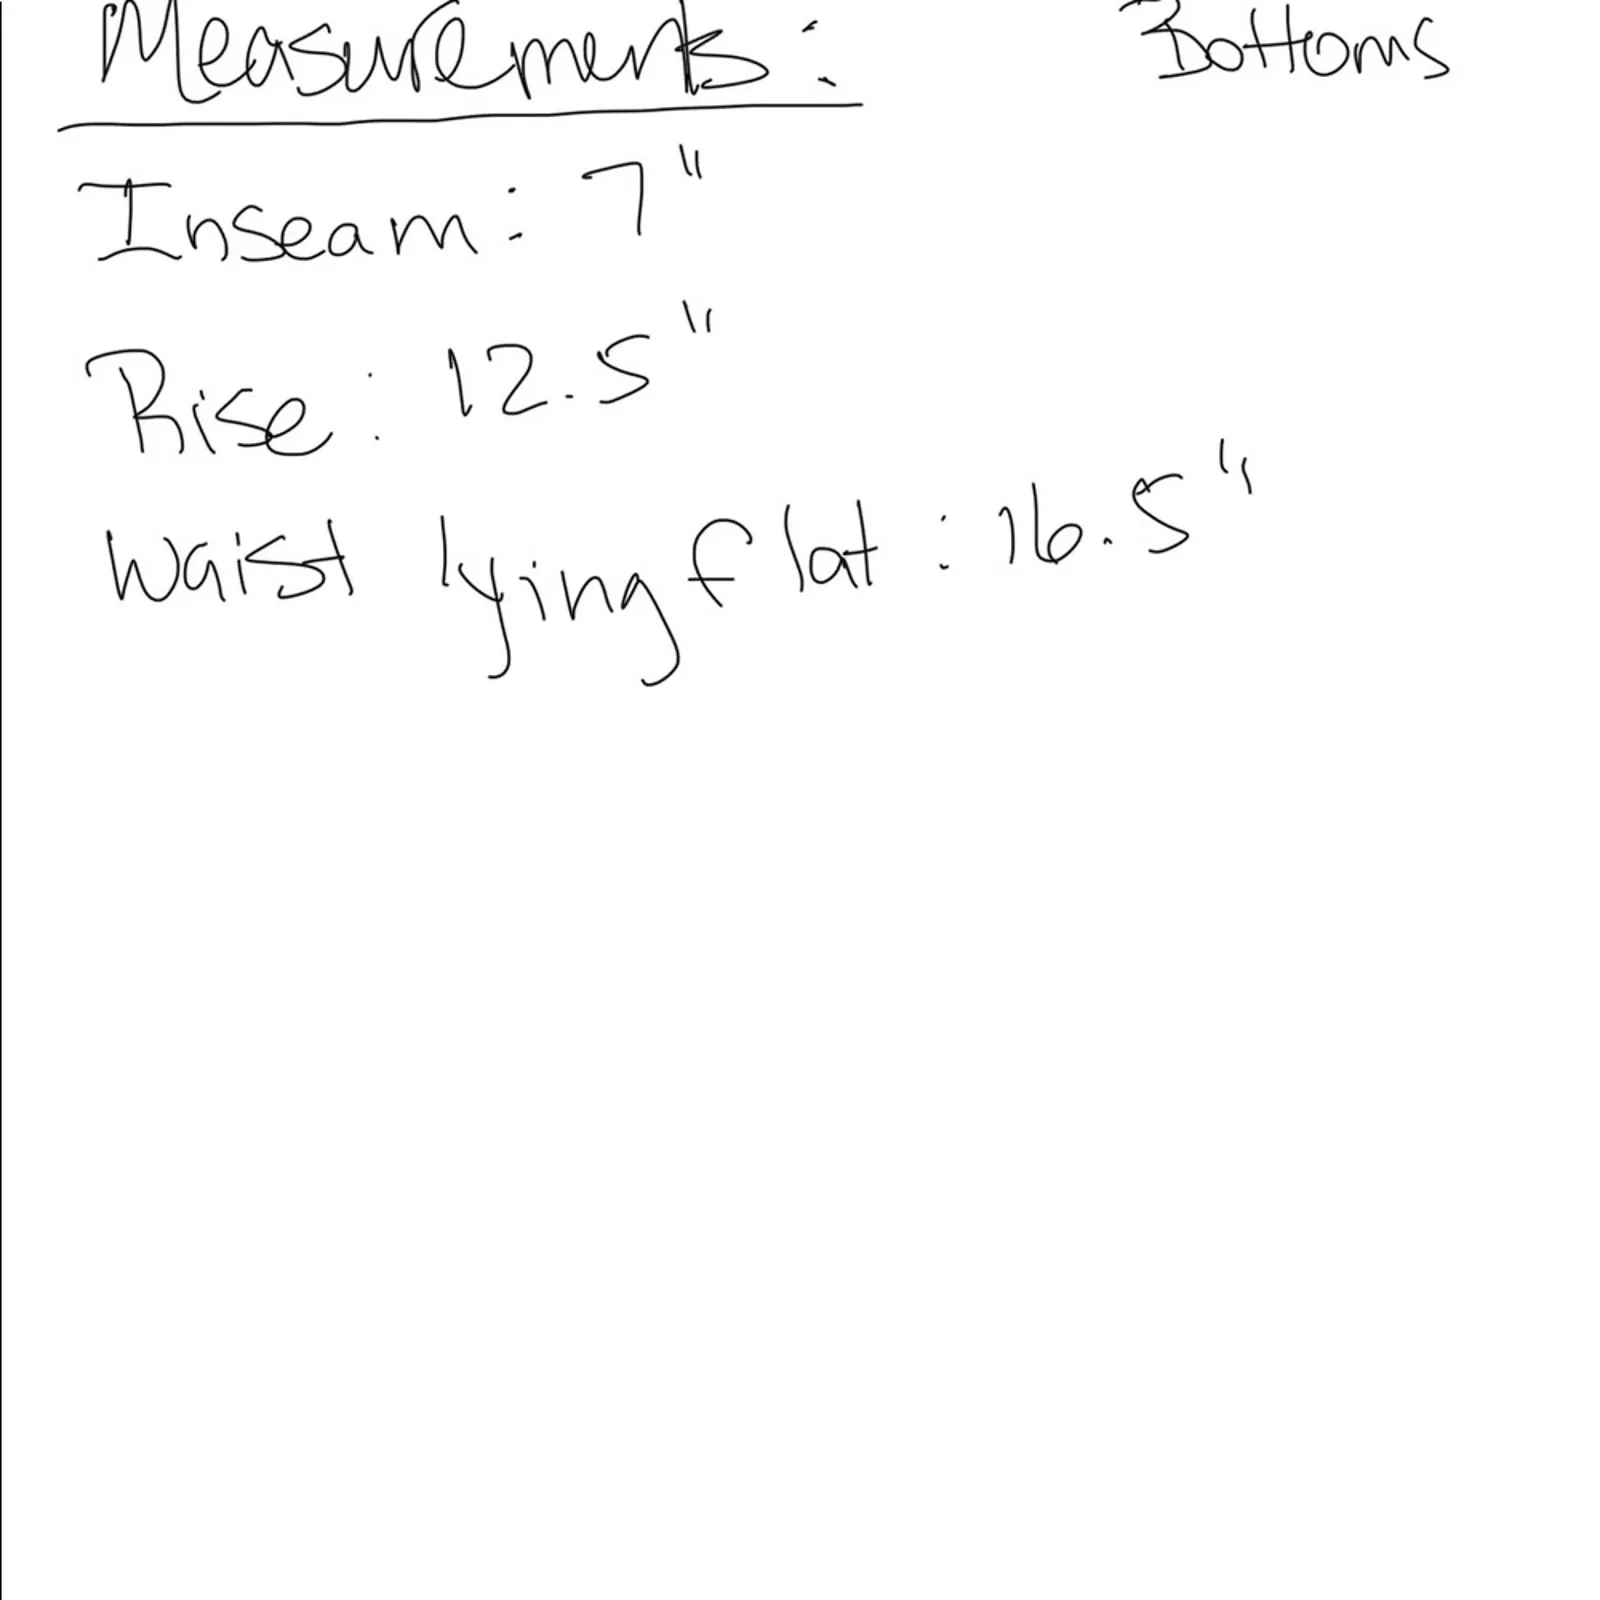 Measurements: Bottoms
Inseam: 7"
Rise: 12.5"
Waist lying flat: 16.5"